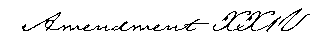 Amendment XXIV